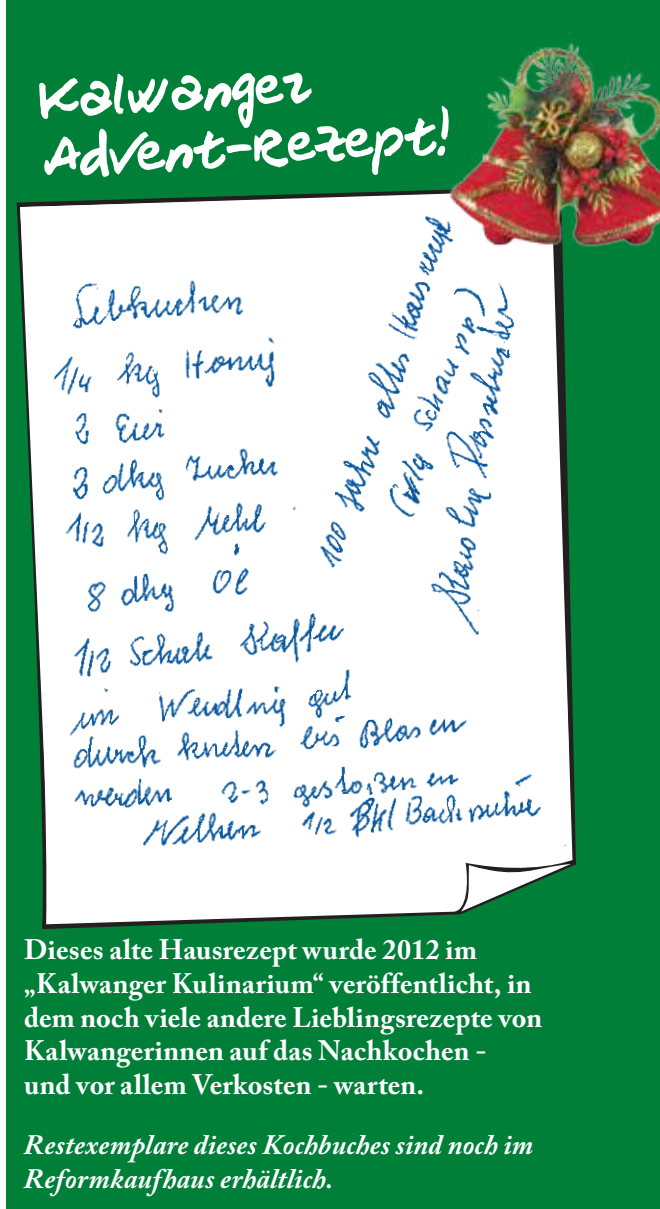 Kalwanger
Advent-Rezept!
Lebkuchen
1/4 kg Honig
2 Eier
3 dkg Zucker
1/2 kg Mehl
8 dkg Öl
1/2 Schale Kaffee
im Weidling gut
durch kneten bis Blasen
werden 2-3 gestoßenen
Nelken 1/2 Pkl Backpulver
100 Jahre altes Hausrezept
Dieses alte Hausrezept wurde 2012 im
„Kalwanger Kulinarium“ veröffentlicht, in
dem noch viele andere Lieblingsrezepte von
Kalwangerinnen auf das Nachkochen -
und vor allem Verkosten - warten.
Restexemplare dieses Kochbuches sind noch im
Reformkaufhaus erhältlich.